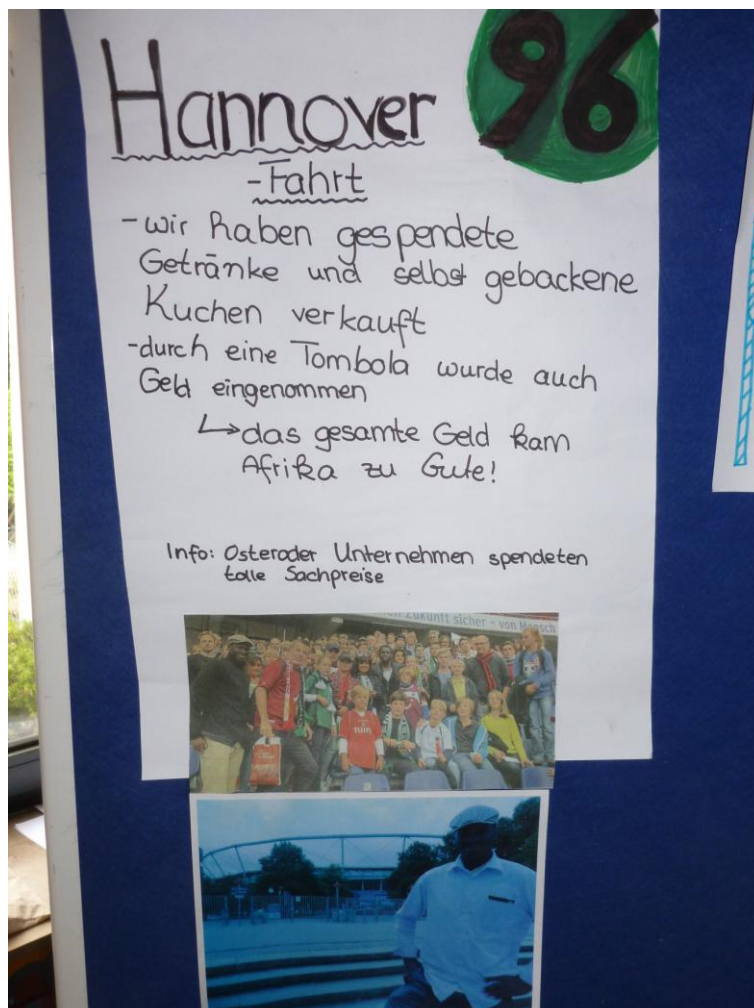 Hannover 96
-Fahrt
- wir haben gespendete
Getränke und selbst gebackene
Kuchen verkauft
- durch eine Tombola wurde auch
Geld eingenommen
↳ das gesamte Geld kam
Afrika zu Gute!
Info: Osteroder Unternehmen spendeten
tolle Sachpreise
Zukunft sicher - von Mensch
TUI